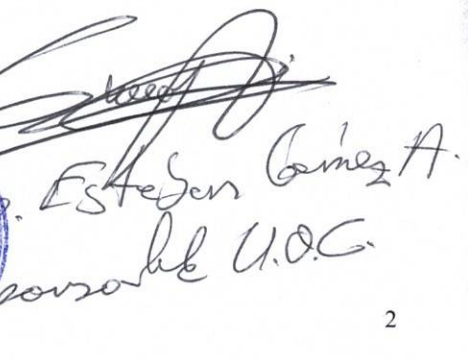 . Esteban Gómez A.
ponsable U.O.C.
2